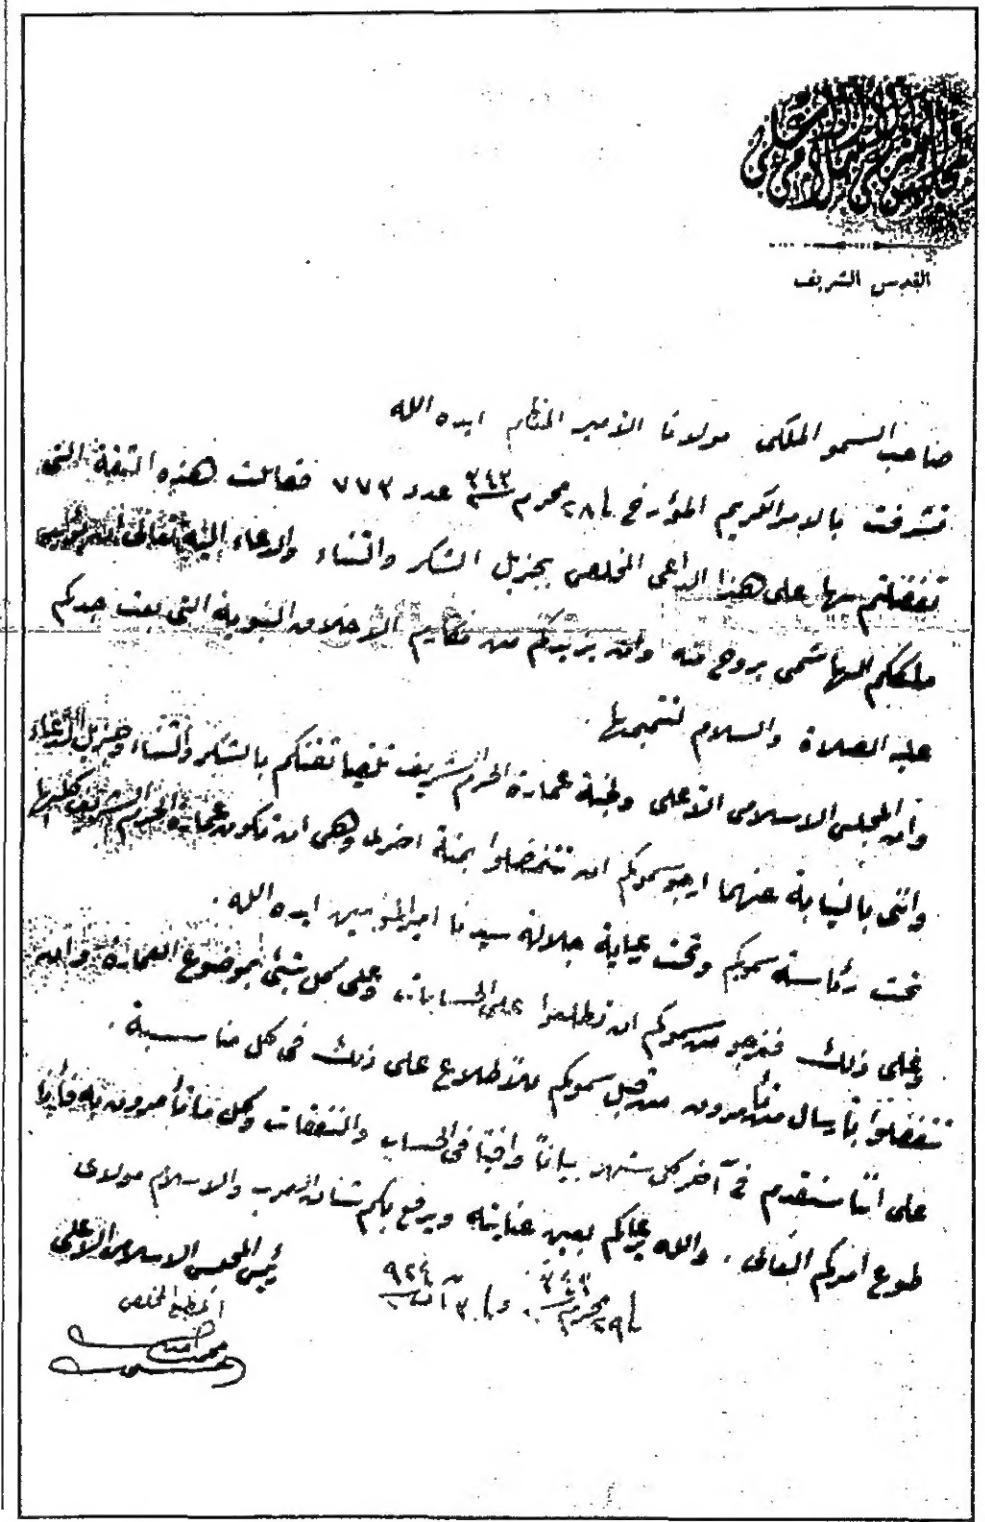 المجلس الشرعي الاسلامي الاعلى
القدس الشريف
صاحب السمو الملكي مولانا الأمير المعظم ايده الله
تشرفت بالامر الكريم المؤرخ في ٢٨ محرم سنة ٣٤٣ عدد ٧٧٣ فقابلت هذه الثقة التي
تفضلتم بها على هذا الداعي المخلص بجزيل الشكر والثناء والدعاء اليه تعالى ان يؤيد
ملككم الهاشمي بروح منه وان يزيدكم من مكارم الاخلاق النبوية التي بعث جدكم
عليه الصلاة والسلام لتتميمها .
وان المجلس الاسلامي الأعلى ولجنة عمارة الحرم الشريف تلقيا ثقتكم بالشكر والثناء وجزيل الدعاء
وانني بالنيابة عنهما ارجو سموكم ان تتفضلوا بمنة اخرى وهي ان تكون عمارة الحرم الشريف كلها
تحت رئاسة سموكم وتحت عناية جلالة سيدنا امير المؤمنين ايده الله .
وعلى ذلك فنرجو من سموكم ان تطلعوا على الحسابات وعلى كل شيء بموضوع العمارة وان
تتفضلوا بارسال من تأمرون من قبل سموكم للاطلاع على ذلك في كل مناسبة .
على اننا سنقدم في آخر كل شهر بياناً وافياً في الحساب والنفقات وكل ما تأمرون به فاننا
طوع امركم العالي . والله يرعاكم بعين عنايته ويرفع بكم شان العرب والاسلام مولاي
في ٢٩ محرم سنة ٣٤٣ و في ٣٠ آب سنة ٩٢٤
رئيس المجلس الاسلامي الاعلى
المطيع المخلص
محمد امين
الحسيني